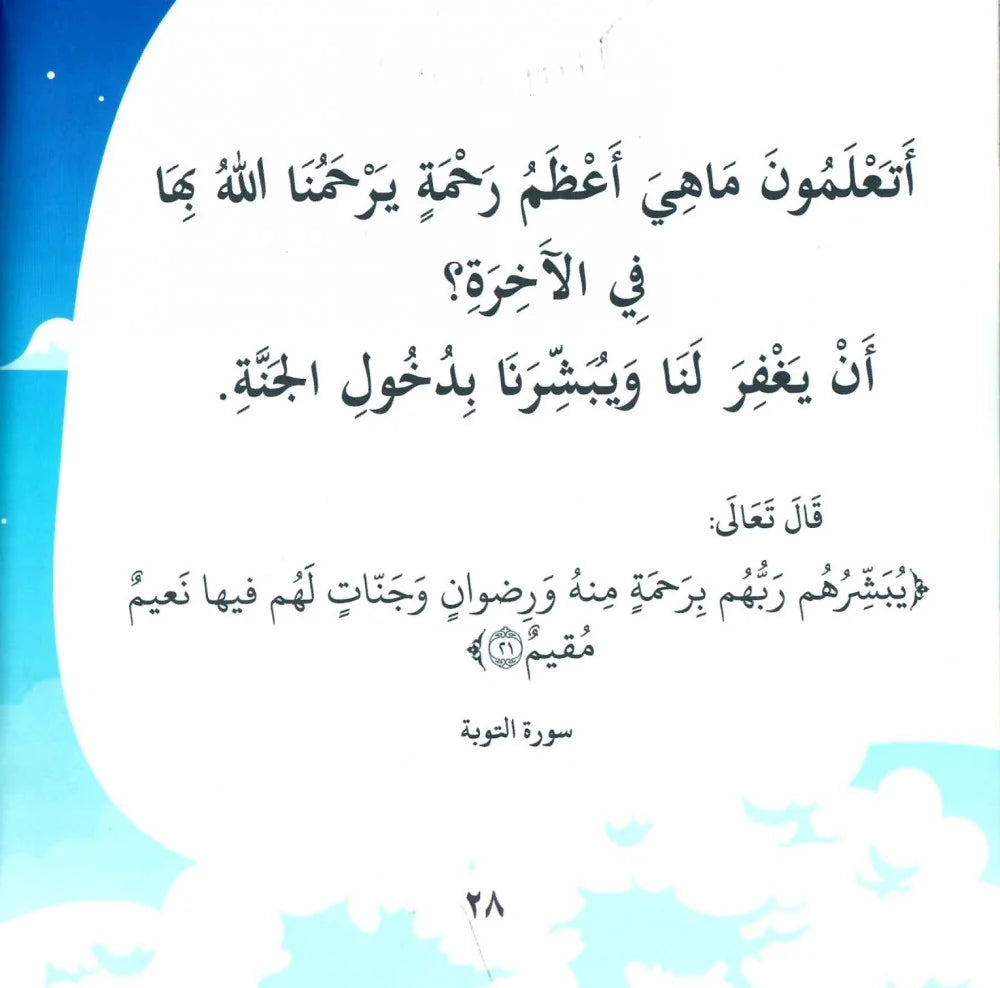 أَتَعْلَمُونَ مَاهِيَ أَعْظَمُ رَحْمَةٍ يَرْحَمُنَا اللهُ بِهَا
فِي الآخِرَةِ؟
أَنْ يَغْفِرَ لَنَا وَيُبَشِّرَنَا بِدُخُولِ الجَنَّةِ.
قَالَ تَعَالَى:
﴿يُبَشِّرُهُم رَبُّهُم بِرَحمَةٍ مِنهُ وَرِضوانٍ وَجَنّاتٍ لَهُم فيها نَعيمٌ
مُقيمٌ ٢١﴾
سورة التوبة
٢٨